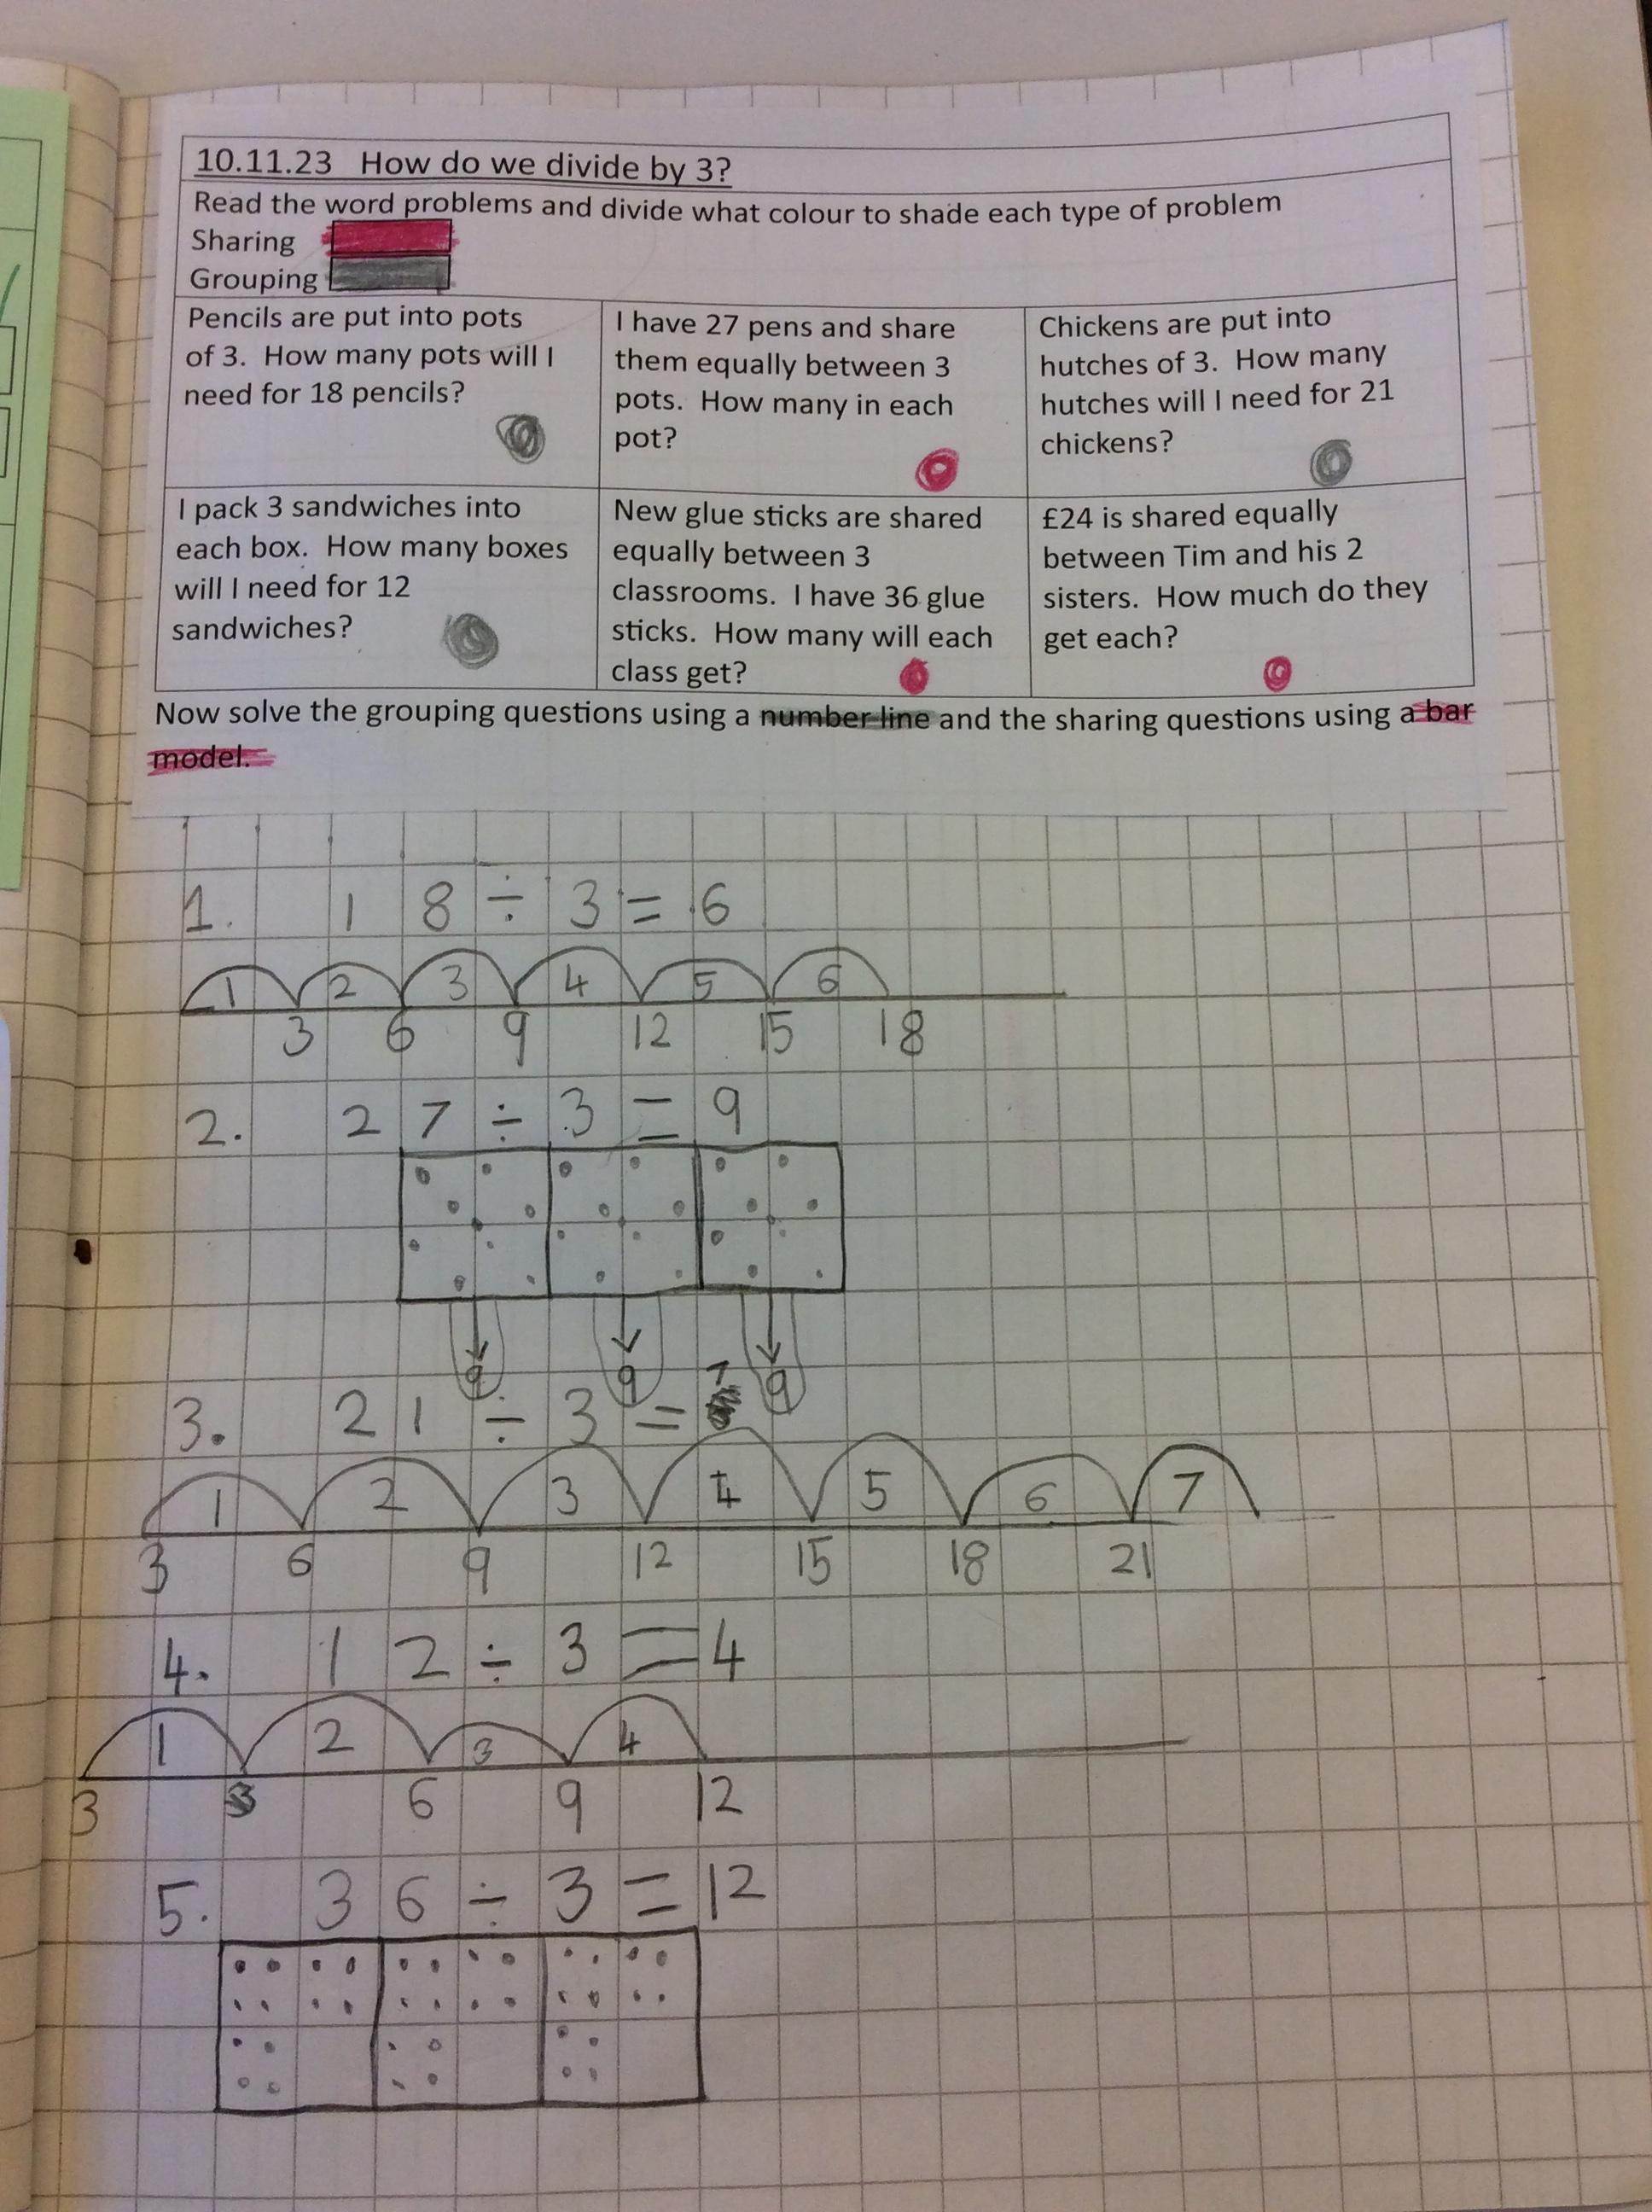 10.11.23 How do we divide by 3?
Read the word problems and divide what colour to shade each type of problem
Sharing
Grouping
Pencils are put into pots
of 3. How many pots will I
need for 18 pencils?
I have 27 pens and share
them equally between 3
pots. How many in each
pot?
Chickens are put into
hutches of 3. How many
hutches will I need for 21
chickens?
I pack 3 sandwiches into
each box. How many boxes
will I need for 12
sandwiches?
New glue sticks are shared
equally between 3
classrooms. I have 36 glue
sticks. How many will each
class get?
£24 is shared equally
between Tim and his 2
sisters. How much do they
get each?
Now solve the grouping questions using a number line and the sharing questions using a bar
model.
1. 18 ÷ 3 = 6
1 2 3 4 5 6
3 6 9 12 15 18
2. 27 ÷ 3 = 9
9 9 9
3. 21 ÷ 3 = 7
1 2 3 4 5 6 7
3 6 9 12 15 18 21
4. 12 ÷ 3 = 4
1 2 3 4
3 3 6 9 12
5. 36 ÷ 3 = 12